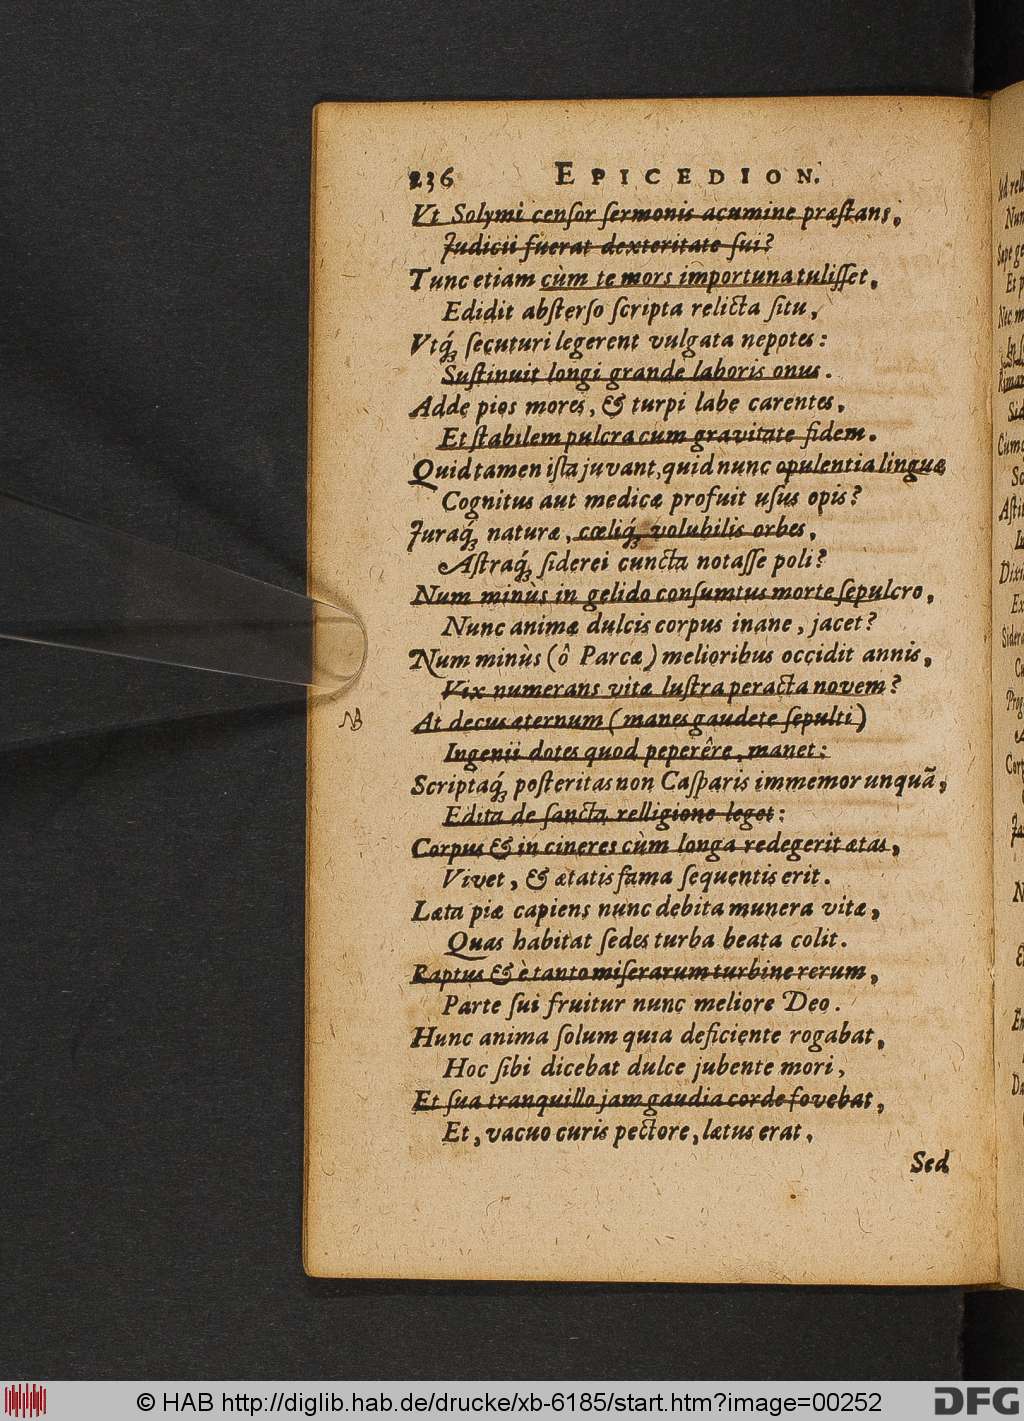 236 EPICEDION.
Vt Solymi cenſor ſermonis acumine præſtans,
Judicii fuerat dexteritate ſui?
Tunc etiam cùm te mors importuna tuliſſet,
Edidit abſterſo ſcripta relicta ſitu,
Vtq́; ſecuturi legerent vulgata nepotes:
Suſtinuit longi grande laboris onus.
Adde pios mores, & turpi labe carentes,
Et ſtabilem pulcra cum gravitate fidem.
Quid tamen iſta juvant, quid nunc opulentia linguæ
Cognitus aut medicæ profuit uſus opis?
Juraq́; naturæ, cœliq́; volubilis orbes,
Aſtraq́; ſiderei cuncta notaſſe poli?
Num minùs in gelido conſumtus morte ſepulcro,
Nunc animæ dulcis corpus inane, jacet?
Num minùs (ô Parcæ) melioribus occidit annis,
Vix numerans vitæ luſtra peracta novem?
NB
At decus æternum (manes gaudete ſepulti)
Ingenii dotes quod peperêre, manet:
Scriptaq́; poſteritas non Caſparis immemor unquã,
Edita de ſancta relligione leget:
Corpus & in cineres cùm longa redegerit ætas,
Vivet, & ætatis fama ſequentis erit.
Læta piæ capiens nunc debita munera vitæ,
Quas habitat ſedes turba beata colit.
Raptus & è tanto miſerarum turbine rerum,
Parte ſui fruitur nunc meliore Deo.
Hunc anima ſolum quia deficiente rogabat,
Hoc ſibi dicebat dulce jubente mori,
Et ſua tranquillo jam gaudia corde fovebat,
Et, vacuo curis pectore, lætus erat,
Sed
© HAB http://diglib.hab.de/drucke/xb-6185/start.htm?image=00252
DFG